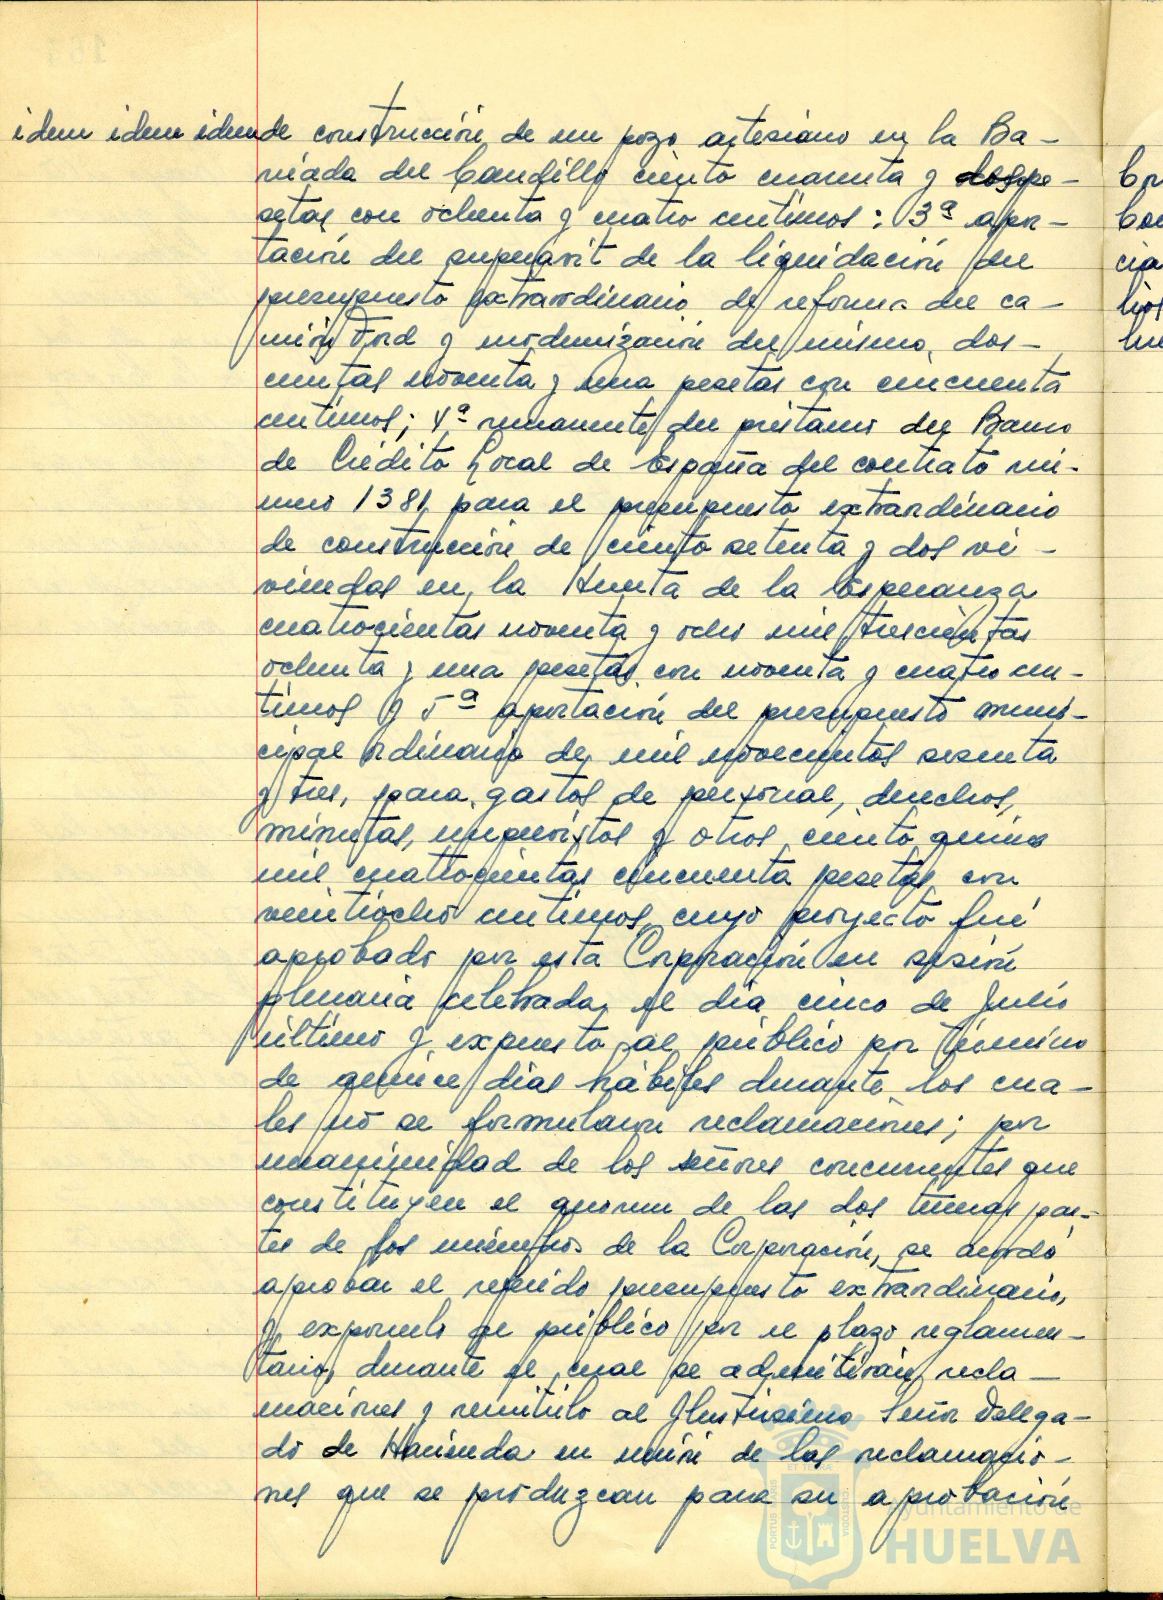 idem idem idem de construcción de un pozo artesiano en la Ba-
rriada del Caudillo ciento cuarenta y dos pe-
setas con ochenta y cuatro céntimos: 3ª apor-
tación del superavit de la liquidación del
presupuesto extraordinario de reforma del ca-
mión Ford y modernización del mismo, dos-
cientas noventa y una pesetas con cincuenta
céntimos; 4ª remanente del préstamo del Banco
de Crédito Local de España del contrato nú-
mero 1381 para el presupuesto extraordinario
de construcción de ciento setenta y dos vi-
viendas en la Huerta de la Esperanza
cuatrocientas noventa y ocho mil trescientas
ochenta y una pesetas con noventa y cuatro cén-
timos y 5ª aportación del presupuesto muni-
cipal ordinario de mil novecientos sesenta
y tres, para gastos de personal, derechos,
minutas, imprevistos y otros ciento quince
mil cuatrocientas cincuenta pesetas con
veintiocho céntimos, cuyo proyecto fué
aprobado por esta Corporación en sesión
plenaria celebrada el dia cinco de Julio
último y expuesto al público por término
de quince días hábiles durante los cua-
les no se formularon reclamaciones; por
unanimidad de los señores concurrentes que
constituyen el quorum de las dos terceras par-
tes de los miembros de la Corporación, se acordó
aprobar el referido presupuesto extraordinario,
y exponerlo al público por el plazo reglamen-
tario, durante el cual se admitirán recla-
maciones y remitirlo al Ilustrísimo Señor Delega-
do de Hacienda en unión de las reclamacio-
nes que se produzcan para su aprobación
Ayuntamiento de
HUELVA